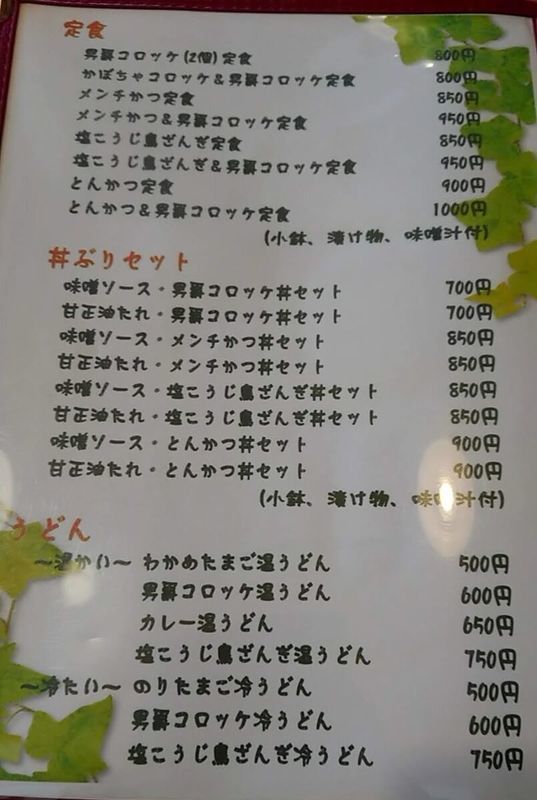 定食
男爵コロッケ(2個)定食 800円
かぼちゃコロッケ&男爵コロッケ定食 800円
メンチかつ定食 850円
メンチかつ&男爵コロッケ定食 950円
塩こうじ鳥ざんぎ定食 850円
塩こうじ鳥ざんぎ&男爵コロッケ定食 950円
とんかつ定食 900円
とんかつ&男爵コロッケ定食 1000円
(小鉢、漬け物、味噌汁付)
丼ぶりセット
味噌ソース・男爵コロッケ丼セット 700円
甘正油たれ・男爵コロッケ丼セット 700円
味噌ソース・メンチかつ丼セット 850円
甘正油たれ・メンチかつ丼セット 850円
味噌ソース・塩こうじ鳥ざんぎ丼セット 850円
甘正油たれ・塩こうじ鳥ざんぎ丼セット 850円
味噌ソース・とんかつ丼セット 900円
甘正油たれ・とんかつ丼セット 900円
(小鉢、漬け物、味噌汁付)
うどん
〜温かい〜 わかめたまご温うどん 500円
男爵コロッケ温うどん 600円
カレー温うどん 650円
塩こうじ鳥ざんぎ温うどん 750円
〜冷たい〜 のりたまご冷うどん 500円
男爵コロッケ冷うどん 600円
塩こうじ鳥ざんぎ冷うどん 750円